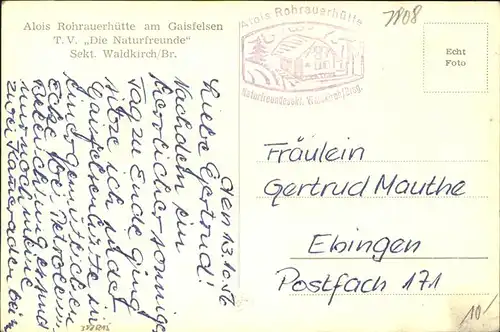 Alois Rohrauerhütte am Gaisfelsen
T. V. „Die Naturfreunde"
Sekt. Waldkirch/Br.
Alois Rohrauerhütte
Naturfreundesekt. Waldkirch/Brsg.
7808
Echt
Foto
den 13.10.56
Liebe Gertrud!
Nachdem ein
herrlicher sonniger
Tag zu Ende ging
sitze ich in der
Gaisfelsenhütte in
einer gemütlichen
Ecke bei
und
nur noch meine
zwei Kameraden bei
Fräulein
Gertrud Mauthe
Ebingen
Postfach 171
10